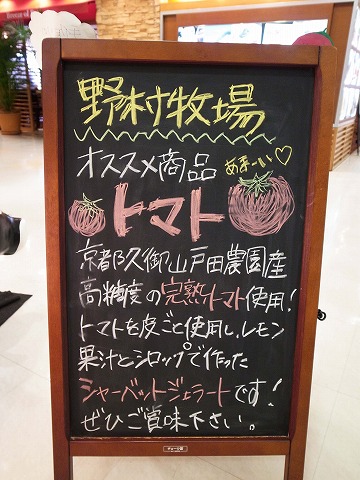 野村牧場
オススメ商品
あまーい♡
トマト
京都久御山戸田農園産
高糖度の完熟トマト使用!
トマトを皮ごと使用し、レモン
果汁とシロップで作った
シャーベットジェラートです!
ぜひご賞味下さい。